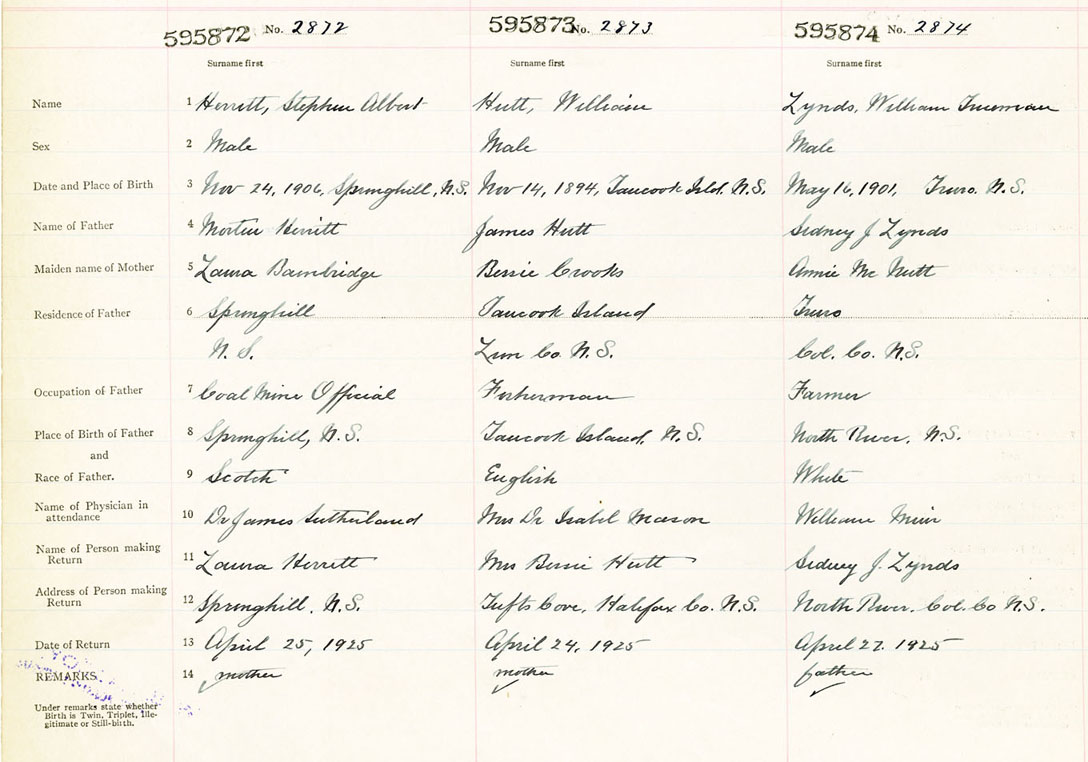 595872 No. 2872 595873 No. 2873 595874 No. 2874
Surname first Surname first Surname first
Name 1 Herritt, Stephen Albert Hutt, William Lynds, William Freeman
Sex 2 Male Male Male
Date and Place of Birth 3 Nov 24, 1906, Springhill, N.S. Nov 14, 1894, Tancook Isld. N.S. May 16, 1901, Truro. N.S.
Name of Father 4 Herritt James Hutt Sidney J Lynds
Maiden name of Mother 5 Laura Bambridge Bessie Crooks Annie Mc Nutt
Residence of Father 6 Springhill Tancook Island Truro
N. S. Lun Co N.S. Col. Co. N.S.
Occupation of Father 7 Coal Mine Official Fisherman Farmer
Place of Birth of Father 8 Springhill, N.S. Tancook Island, N.S. North River, N.S.
and
Race of Father. 9 Scotch English White
Name of Physician in
attendance 10 Dr James Sutherland Mrs Dr Isabel Mason William Muir
Name of Person making
Return 11 Laura Herritt Mrs Bessie Hutt Sidney J. Lynds
Address of Person making
Return 12 Springhill, N.S. Tufts Cove, Halifax Co. N.S. North River, Col. Co N.S.
Date of Return 13 April 25, 1925 April 24, 1925 April 27. 1925
REMARKS 14 mother mother father
Under remarks state whether
Birth is Twin, Triplet, Ille-
gitimate or Still-birth.